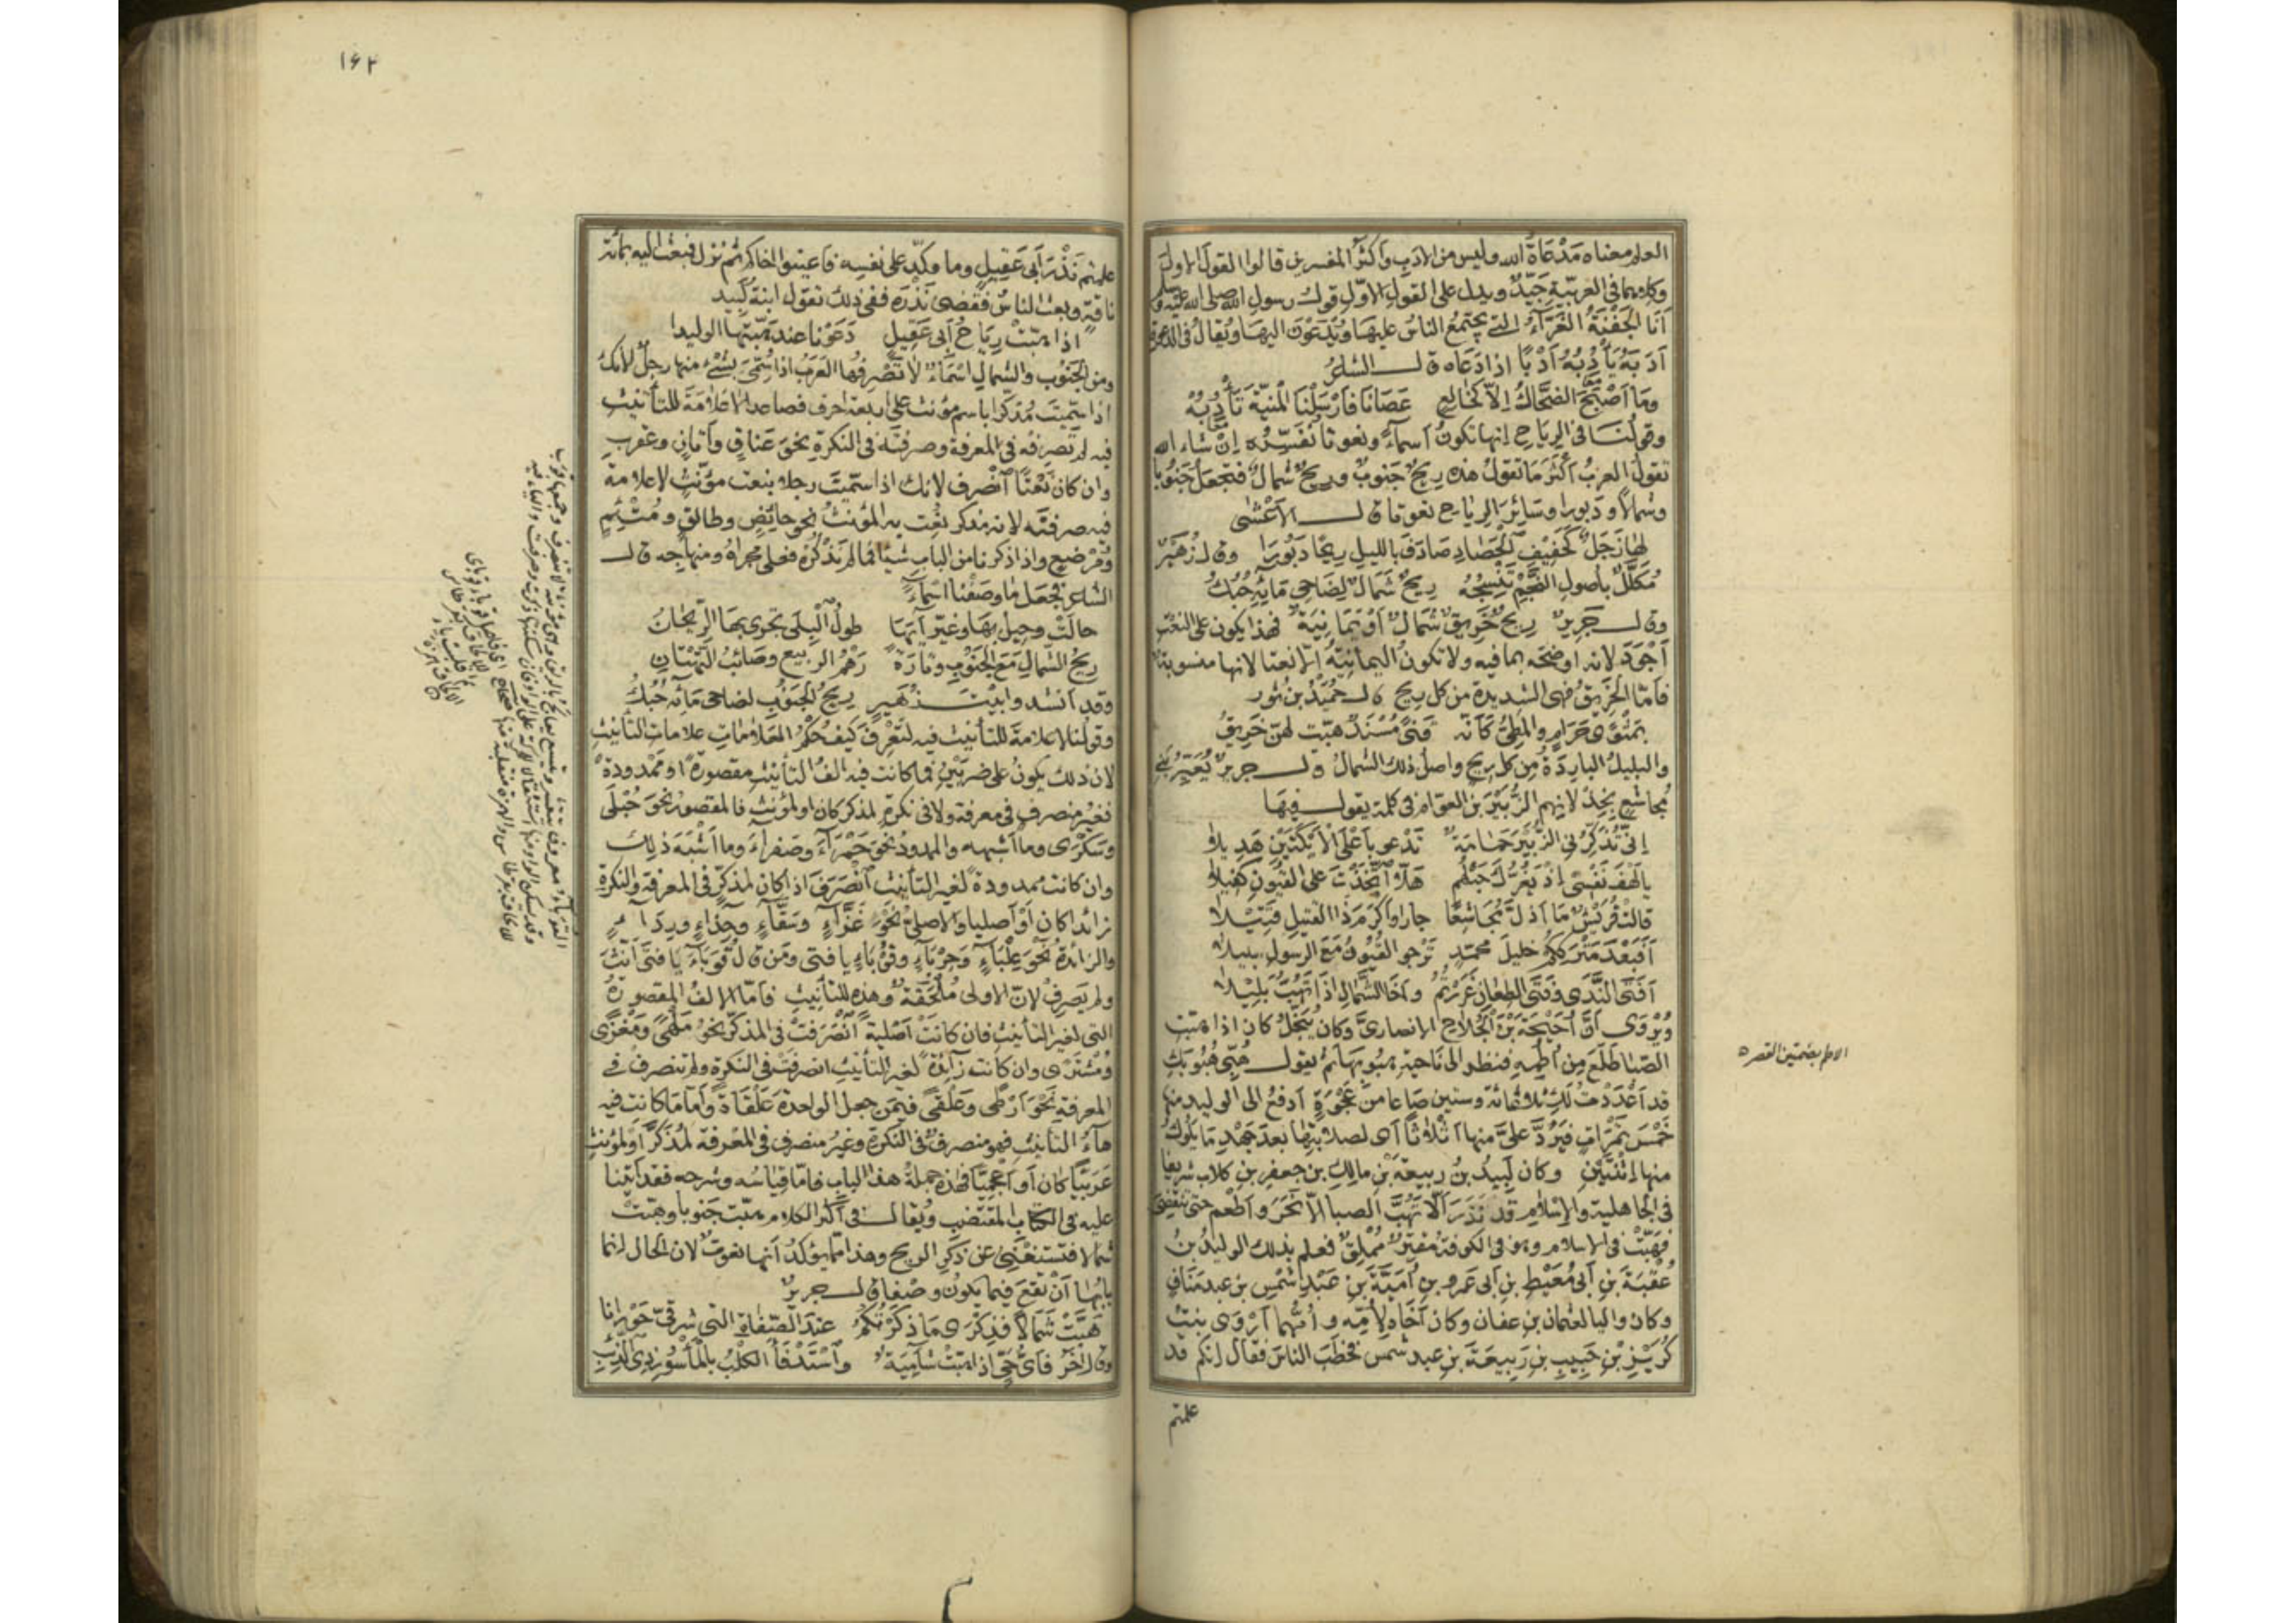 العلم معناه مَدْعَاةُ الله وليس من الادَبِ وأكثر المفسرين قالوا القول الاول
وكلاهما في العربيّة جَيّدٌ ويدل على القول الاوّل قول رسول الله صلى الله عليه وسلم
أنا الجَفْنَةُ الغَرّآءُ التي يجتمع الناسُ عليها ويُدْعَوْن اليها ويُقال في الدعوة
أدَبَهُ يَأْدِبُهُ أَدْبًا اذا دَعَاه قال الشاعرُ
وما أصْبَحَ الضحّاكُ إلّا كخالعٍ عصانا فأرسلنا المنيّة تأدُبُهْ
وقولُنا في الرياح إنها تكونُ أسماءً ونعوتا نُفَسّرُه إن شاء الله
تقول العربُ أكثر ما تقول هذه ريحٌ جنوبٌ وريحٌ شمالٌ فتجعل جَنُوبا
وشمالًا ودَبورا وسائر الرياح نعوتا قال الأعْشَى
لها زَجَلٌ كحفيف الحَصاد صَادَفَ بالليل ريحًا دَبُورَا وقال زُهَيْرٌ
مُكَلَّلٌ بأصول النّجْمِ تَنْسِجُهُ ريحٌ شَمالٌ لضاحي مائِهِ حُبُكُ
وقال جَريرٌ ريحٌ خَرِيقٌ شمالٌ أو يَمَانِيَةٌ فهذا يكون على النعت
أجْوَدَ لانه اوضحه بما فيه ولا تكون اليمانِيَةُ إلّا نعتا لانها منسوبة
فأمّا الخَريقُ فهي الشديدة من كل ريح قال حُمَيْدُ بن ثور
بمَثْوًى حَرامٍ والمطِيُّ كأنّه قَنًى مُسْنَدٌ هبّت لهنّ خَريقُ
والبليلُ الباردَةُ مِن كل ريح واصلُ ذلك الشمالُ قال جريرٌ يُعَيّرُ بني
مُجاشع بخذلانهم الزُّبَيْرَ بن العوّام في كلمة يقول فيها
إنّي تُذَكِّرُني الزُّبَيرَ حَمَامَةٌ تَدْعو بأعْلَى الأيْكَتَيْنِ هَدِيلا
يا لَهْفَ نَفْسي اذ يَغُرّكَ حَبْلُهُم هَلّا اتّخَذْتَ على القُيونِ كَفيلا
قالت قُرَيْشٌ ما أذلّ مُجاشِعًا جارا وأكرَمَ ذا القتيلِ قَتِيلا
أفَبَعْدَ مَتْرَكِكُم خليلَ محمّدٍ تَرْجو القُيُونُ مَعَ الرسولِ سبيلا
أفَتَى النَّدَى وفَتَى الطِعانِ غَرَرْتُمُ وأخَا الشّمالِ اذا تَهُبُّ بَليلا
ويُرْوَى أنّ أُحَيْحَةَ بْنَ الجُلاحِ الانصاريّ وكان يُبَخَّلُ كان اذا هبّت
الصَّبا طَلَعَ مِن أُطُمِهِ فنظر الى ناحية هبوبها ثم يقول هُبّي هُبُوبَكِ
قد أعْدَدْتُ لَكِ ثلثمائة وستين صَاعا من عَجْوَةٍ أدفعُ الى الوليد منها
خَمْسَ تَمَرَاتٍ فيَرُدّ علىّ منها اثْلاثًا أي لصلابتها بعد جَهْدِ ما يَلُوكُ
منها اثْنَتَيْنِ وكان لَبيدُ بنُ ربيعةَ بْنِ مالِكِ بن جعفر بن كلاب شريفا
في الجاهلية والإسلام قد نَذَرَ ألّا تَهُبَّ الصبا الّا نَحَرَ وأطْعَم حتى تنقضي
فهَبّتْ في الاسلام وهو في الكوفة مُقْتِرٌ مُمْلِقٌ فعلم بذلك الوليدُ بنُ
عُقْبَةَ بنِ أبي مُعَيْطِ بنِ أبي عمرو بنِ أُمَيّةَ بنِ عَبْدِ شَمْسِ بن عبد مَنَافٍ
وكان واليا لعثمان بن عفان وكان أخاه لأمّه وأمّهما أرْوَى بنتُ
كُرَيْزِ بْنِ حَبِيبِ بنِ رَبيعَةَ بنِ عبد شمس فخطَبَ الناسَ فقال إنكم قد
علمتم
الاطم بضمتين القصر
١٦٢
علمتم نَذْرَ أبي عَقيلٍ وما وكّد على نفسه فأعينوا اخاكم ثم نزل فبعث اليه بمائة
ناقة وبعث الناسُ فقَضى نَذْرَه ففي ذلك تقول ابنةُ لبيد
اذا هبّتْ رِياحُ أبي عَقِيلٍ دَعَوْنا عند هَبّتِها الوليدا
ومن الجَنُوب والشمال اسماءٌ لا تصرفها العرَبُ اذا سُمّيَ بشئ منها رجلٌ لأنك
اذا سمّيتَ مُذكّرا باسم مؤنث على اربعة احرف فصاعدا لا علامة للتأنيث
فيه لم تصرفه في المعرفة وصرفته في النكرة نحو عَنَاقٍ وأتانٍ وعقربٍ
وان كان نَعْتًا انصرف لانك اذا سمّيتَ رجلا بنعت مؤنّثٍ لا علامة
فيه صرفتَه لانه مذكر نُعِت به المؤنثُ نحو حائضٍ وطالقٍ ومُتْئِمٍ
ومُرْضِعٍ واذا ذكرنا من الباب شيئا فما لم نَذْكُرْه فعلى مجراه ومنهاجه قال
الشاعر فجعل ما وصفنا اسماءً
حالَتْ وحِيلَ بها وغيّر آيَها طولُ البِلَى تجري بها الرّيحانُ
ريحُ الشمال مع الجنوب وتارَةً رِهَمُ الربيع وصائبُ التَّهْتانِ
وقد أنشدوا بيتَ زُهَيرٍ ريحُ الجَنوبِ لضاحي مائه حُبُكُ
وقولُنا لا علامة للتأنيث فيه لتعْرِفَ كيف حُكْمُ العَلاماتِ علامات التأنيث
لان ذلك يكونُ على ضربَيْنِ فما كانت فيه ألفُ التأنيث مقصورةً او ممدودةً
فغيرُ منصرف في معرفة ولا في نكرةٍ لمذكر كان او لمؤنث فالمقصور نحو حُبْلَى
وسَكْرَى وما أشبهه والممدودُ نحو حَمْرَآءَ وصَفرآءَ وما أشْبَهَ ذلك
وان كانت ممدودةً لغير التأنيث انصَرَفَ اذا كان لمذكّرٍ في المعرفة والنكرة
زائدا كان أوْ أصليا والاصليُّ نحو غَزّآءٍ وسَقّآءٍ وحِذاءٍ ورِداءٍ
والزائدةُ نحو عِلْبَاءٍ وحِرْبَآءٍ وقُوبَاءٍ يا فتى ومَن قال قُوَبَآءُ يا فتى أنّث
ولم يَصرِفْ لانّ الاولى مُلْحَقَةٌ وهذه للتأنيث فأمّا الالفُ المقصورةُ
التي لغير التأنيث فان كانت أصليةً انْصَرَفَتْ في المذكّر نحو مَلْهًى ومَغْزًى
ومُشْتَرًى وان كانت زآئدةً لغير التأنيث انصرفت في النكرة ولم تنصرف في
المعرفة نحو أرْطًى وعَلْقًى فيمن جعل الواحدة عَلْقاةً وأما ما كانت فيه
هاءُ التأنيث فهو منصرفٌ في النكرة وغيرُ منصرف في المعرفة لمذَكّرٍ أو لمؤنثٍ
عَرَبيّا كان أو أعْجَميًّا فهذه جملةُ هذا الباب فأمّا قياسُه وشرحه فقد أتينا
عليه في الكتابِ المقتضب ويُقال في أكثر الكلام هبّت جَنوبا وهبّت
شمالا فتستغني عن ذكر الريح وهذا مما يؤكدُ أنها نعوتٌ لان الحال إنما
بابُها أنْ تقَع فيما يكون وصْفا قال جريرٌ
هَبّتْ شَمالًا فذِكْرَى ما ذكَرْتُكُمُ عند الصَّفاةِ التي شرقيّ حَوْرانا
وقال آخَرُ فأيُّ حيٍّ اذا هبّت شآمِيَةً واسْتَدْفأَ الكلبُ بالمأسور ذي الذِّئَبِ